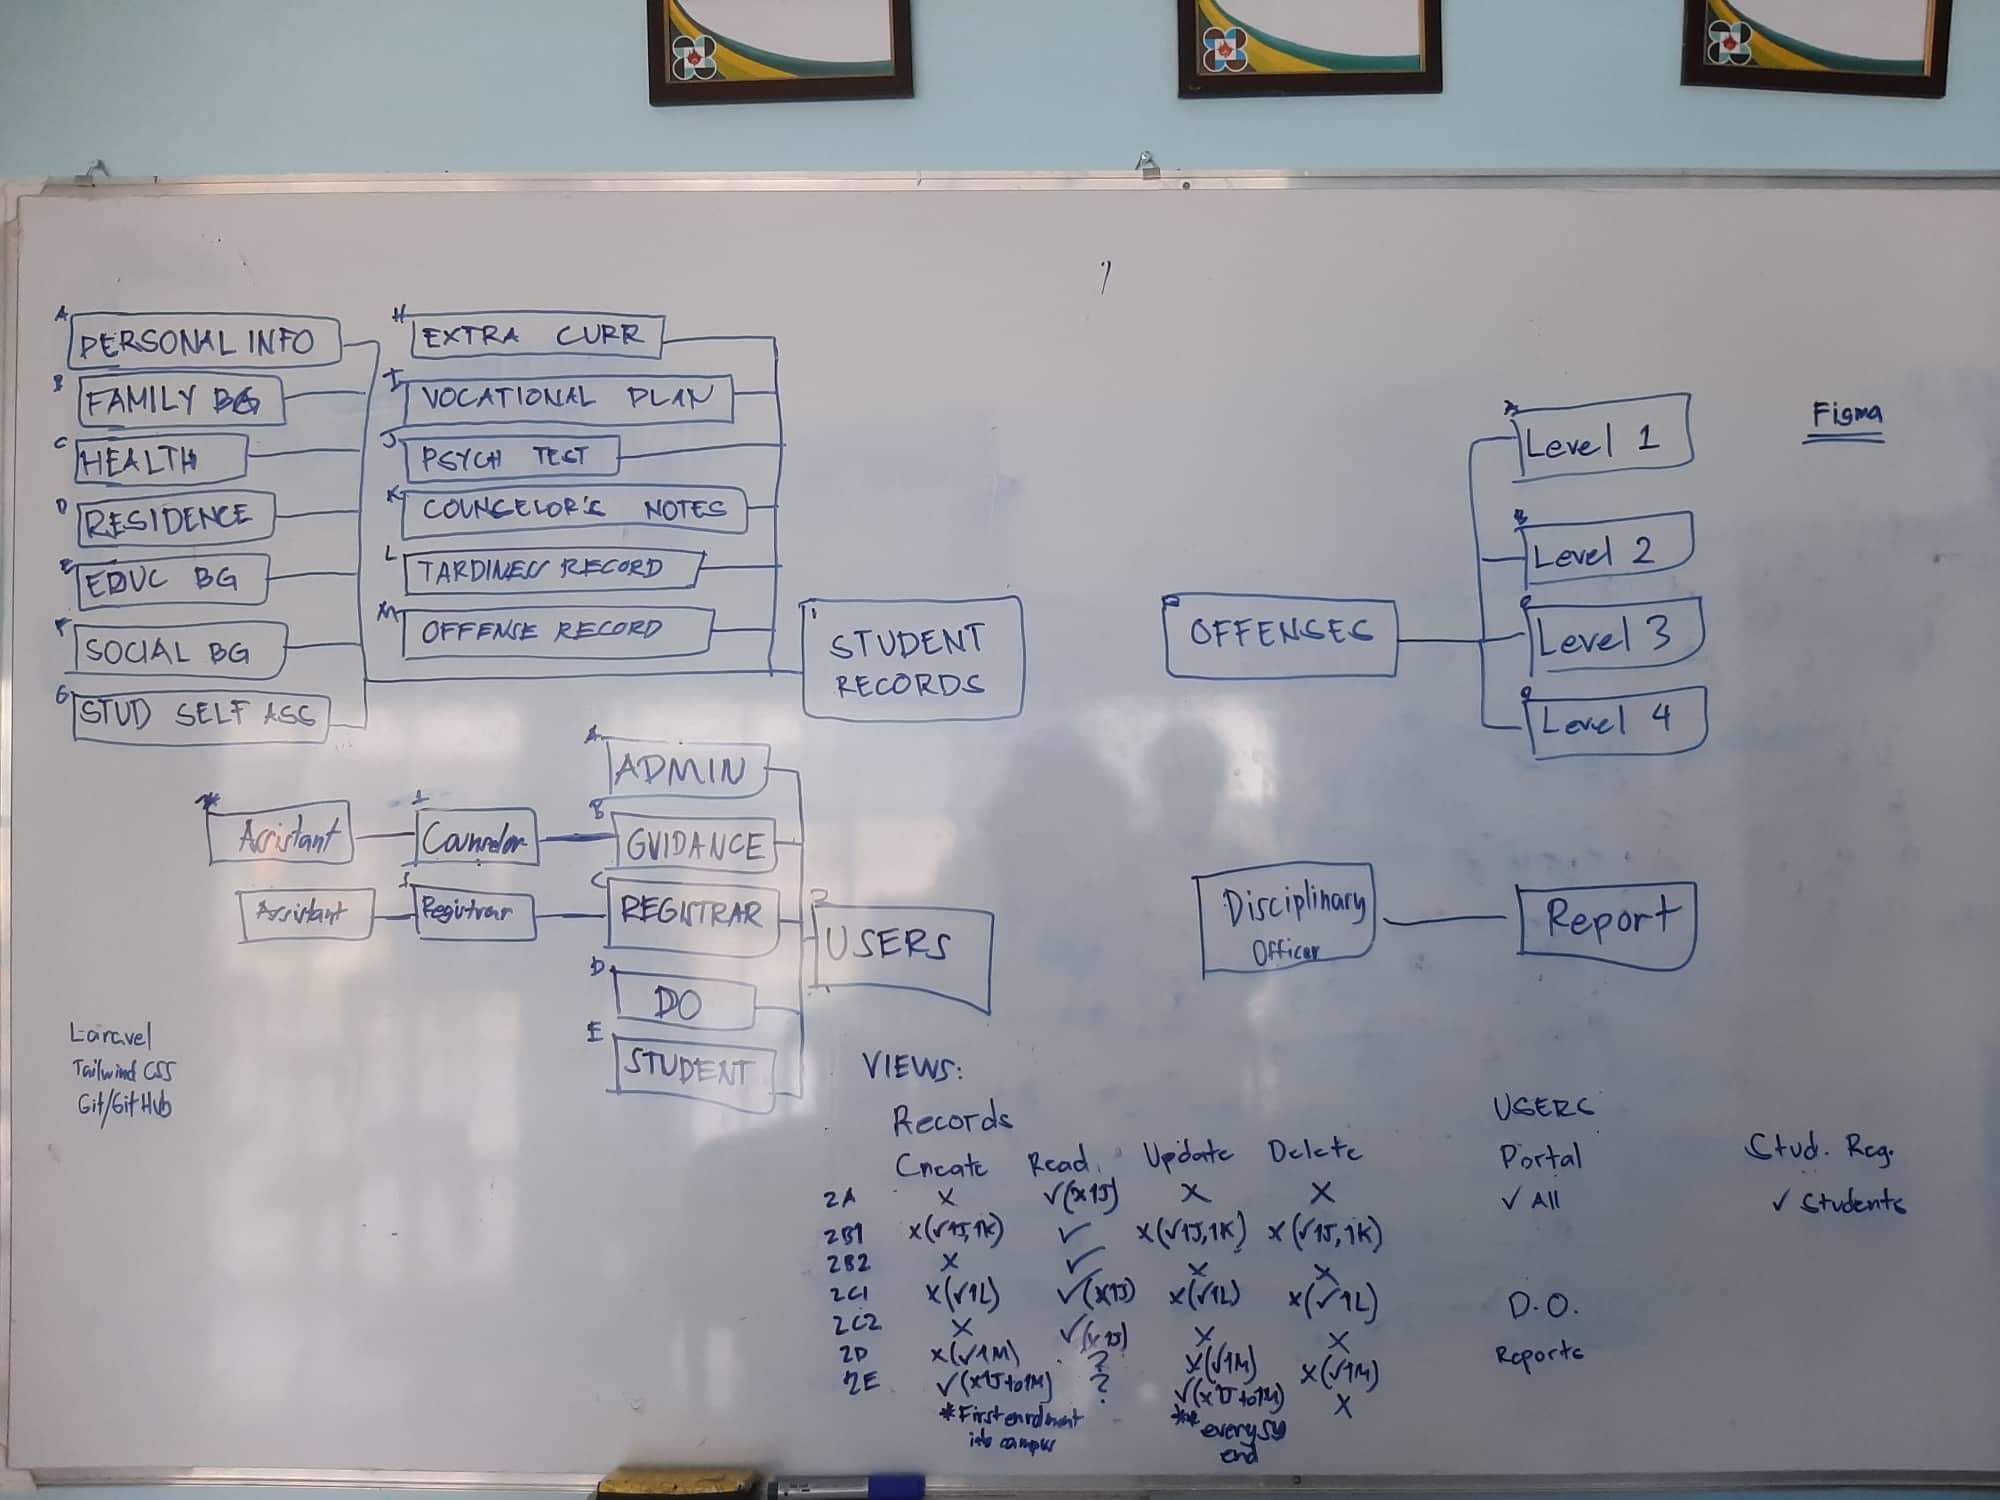 A
PERSONAL INFO
B
FAMILY BG
C
HEALTH
D
RESIDENCE
E
EDUC BG
F
SOCIAL BG
G
STUD SELF ASS
H
EXTRA CURR
I
VOCATIONAL PLAN
J
PSYCH TEST
K
COUNSELOR'S NOTES
L
TARDINESS RECORD
M
OFFENSE RECORD
1
STUDENT
RECORDS
OFFENSES
A
Level 1
B
Level 2
C
Level 3
D
Level 4
Figma
A
ADMIN
Assistant
1
Counselor
B
GUIDANCE
Assistant
1
Registrar
C
REGISTRAR
D
DO
E
STUDENT
2
USERS
Disciplinary
Officer
Report
Laravel
Tailwind CSS
Git/GitHub
VIEWS:
Records
Create Read Update Delete
2A X ✓(X1J) X X
2B1 X(✓1J,1K) ✓ X(✓1J,1K) X(✓1J,1K)
2B2 X ✓ X X
2C1 X(✓1L) ✓(X1J) X(✓1L) X(✓1L)
2C2 X ✓(X1J) X X
2D X(✓1M) ? X(✓1M) X(✓1M)
2E ✓(X1J to 1M) ? ✓(X1J to 1M) X
*First enrolment
into campus
** every SY
end
USERS
Portal
✓ All
Stud. Reg.
✓ Students
D.O.
Reports